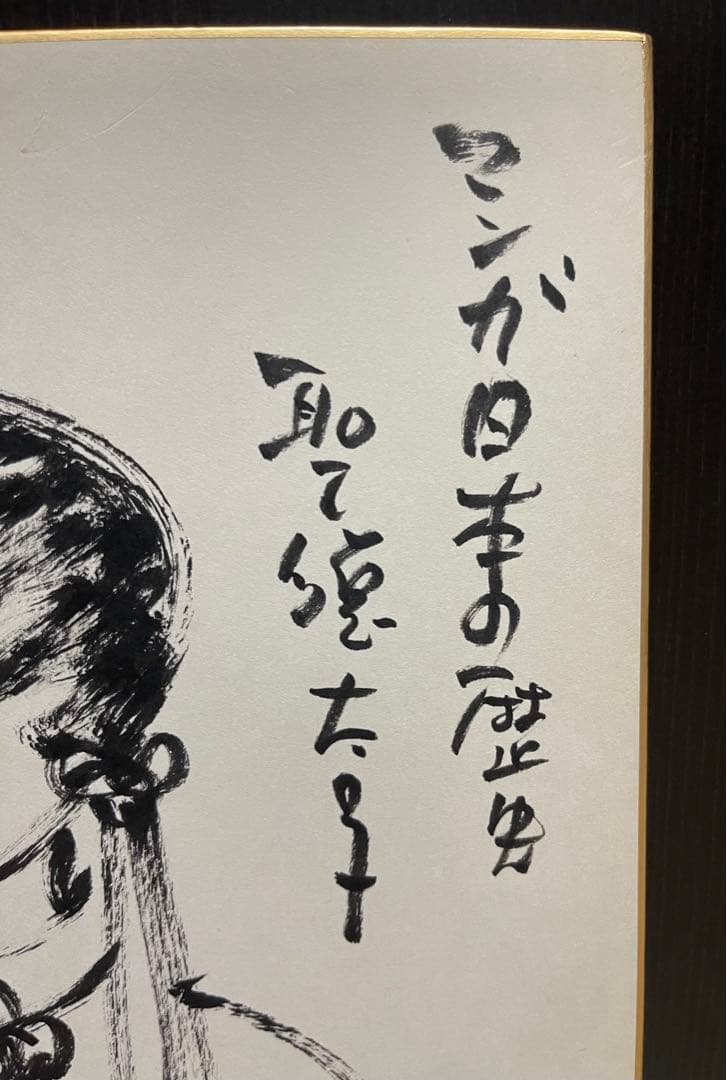 マンガ日本の歴史
聖徳太子